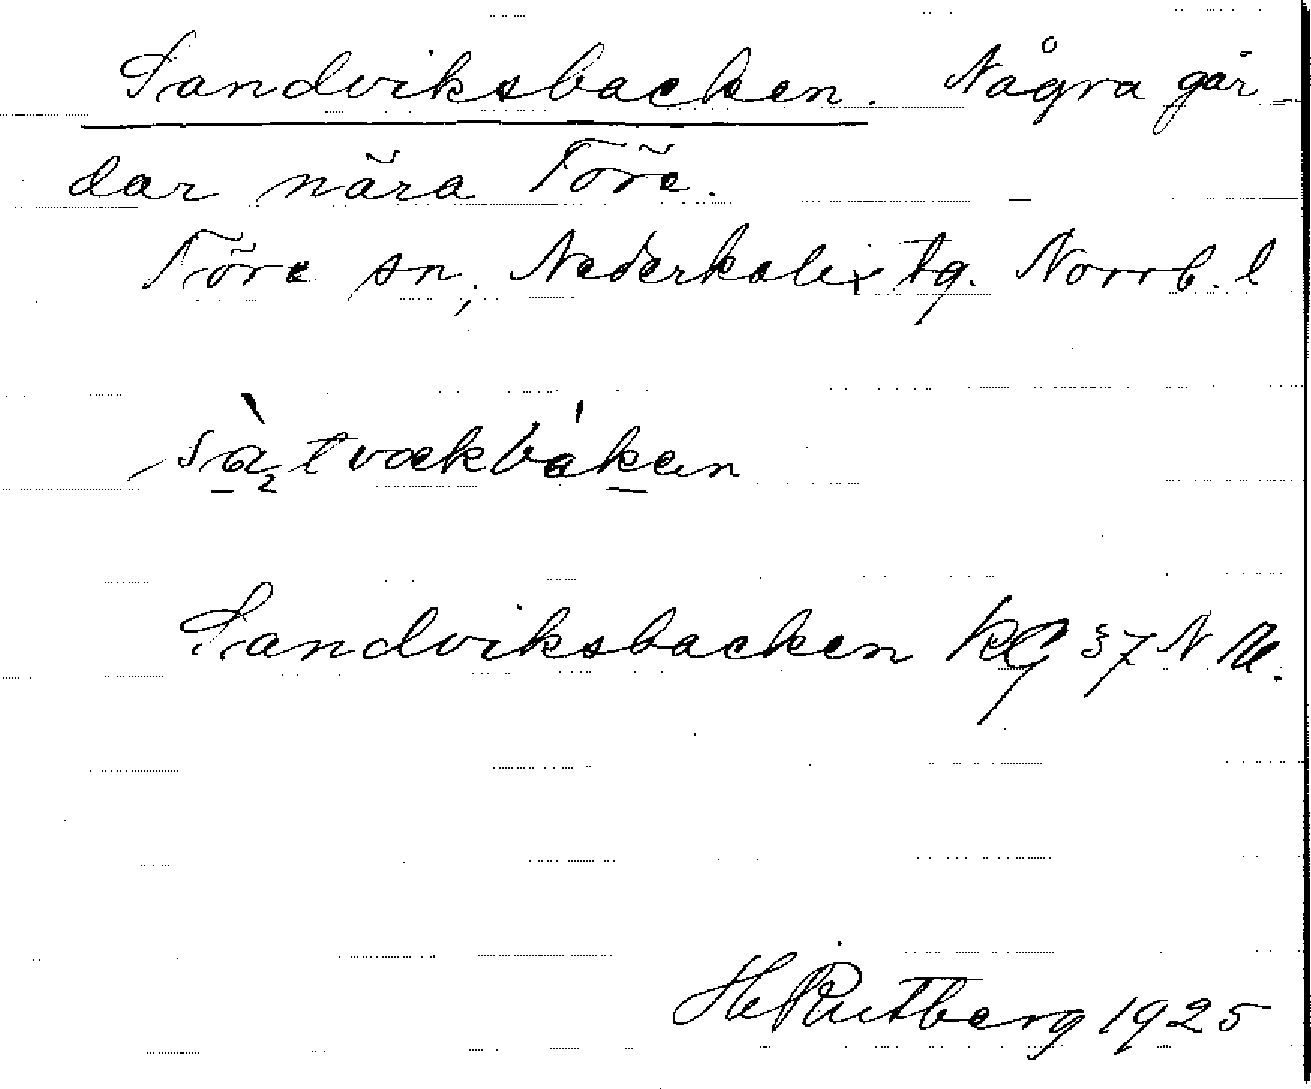 Sandviksbacken. Några går-
dar nära Töre.
Töre sn, Nederkalix tg. Norrb. l
Sandviksbacken KG 37 N
H Rutberg 1925